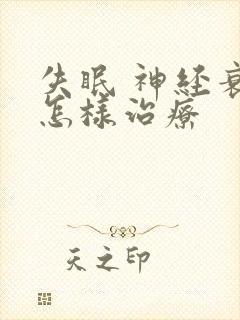 失眠 神经衰
怎样治療
天之印